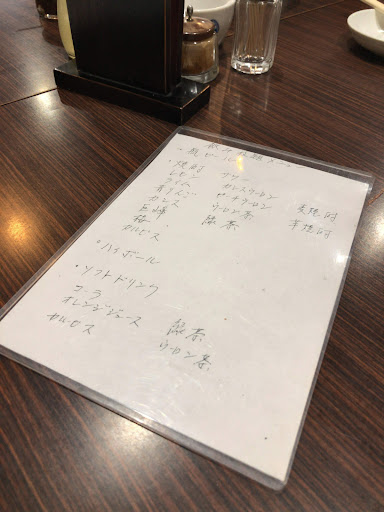 飲み放題メニュー
・瓶ビール
・焼酎 サワー
レモン カシスウーロン
ライム ピーチウーロン 麦焼酎
青りんご ウーロン茶 芋焼酎
カシス 緑茶
巨峰
梅
カルピス
・ハイボール
・ソフトドリンク
コーラ 緑茶
オレンジジュース ウーロン茶
カルピス